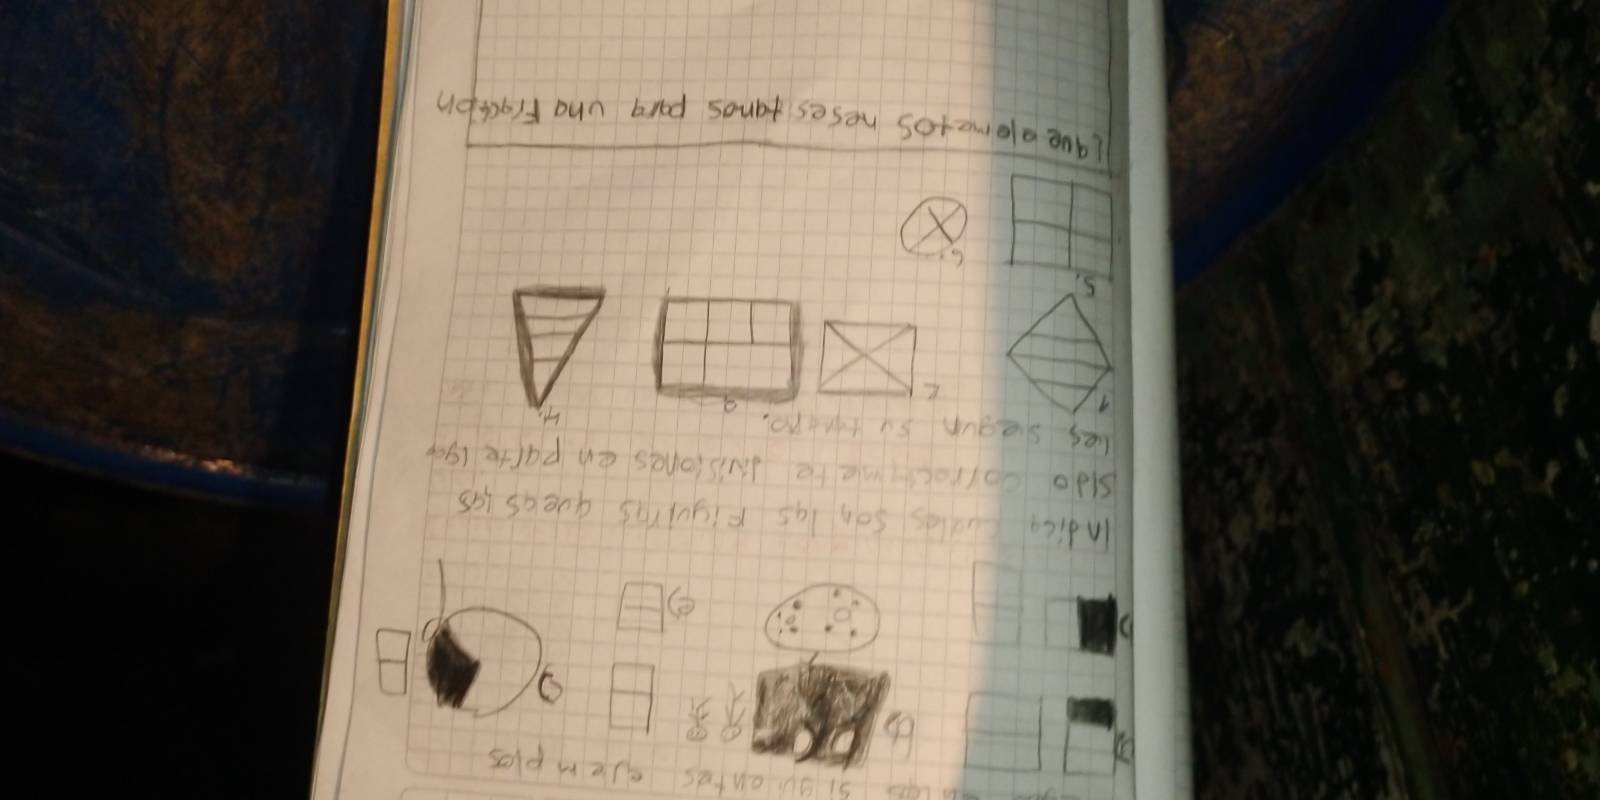 siguientes ejemplos
a)
b)
c)
d)
e)
Indica cuales son las figuras que as las
sido correctmete divisiones en parte igua
les segun su tmaño.
1
2
3
4.
5.
6.
¿que elometos neses tamos para una Fraction